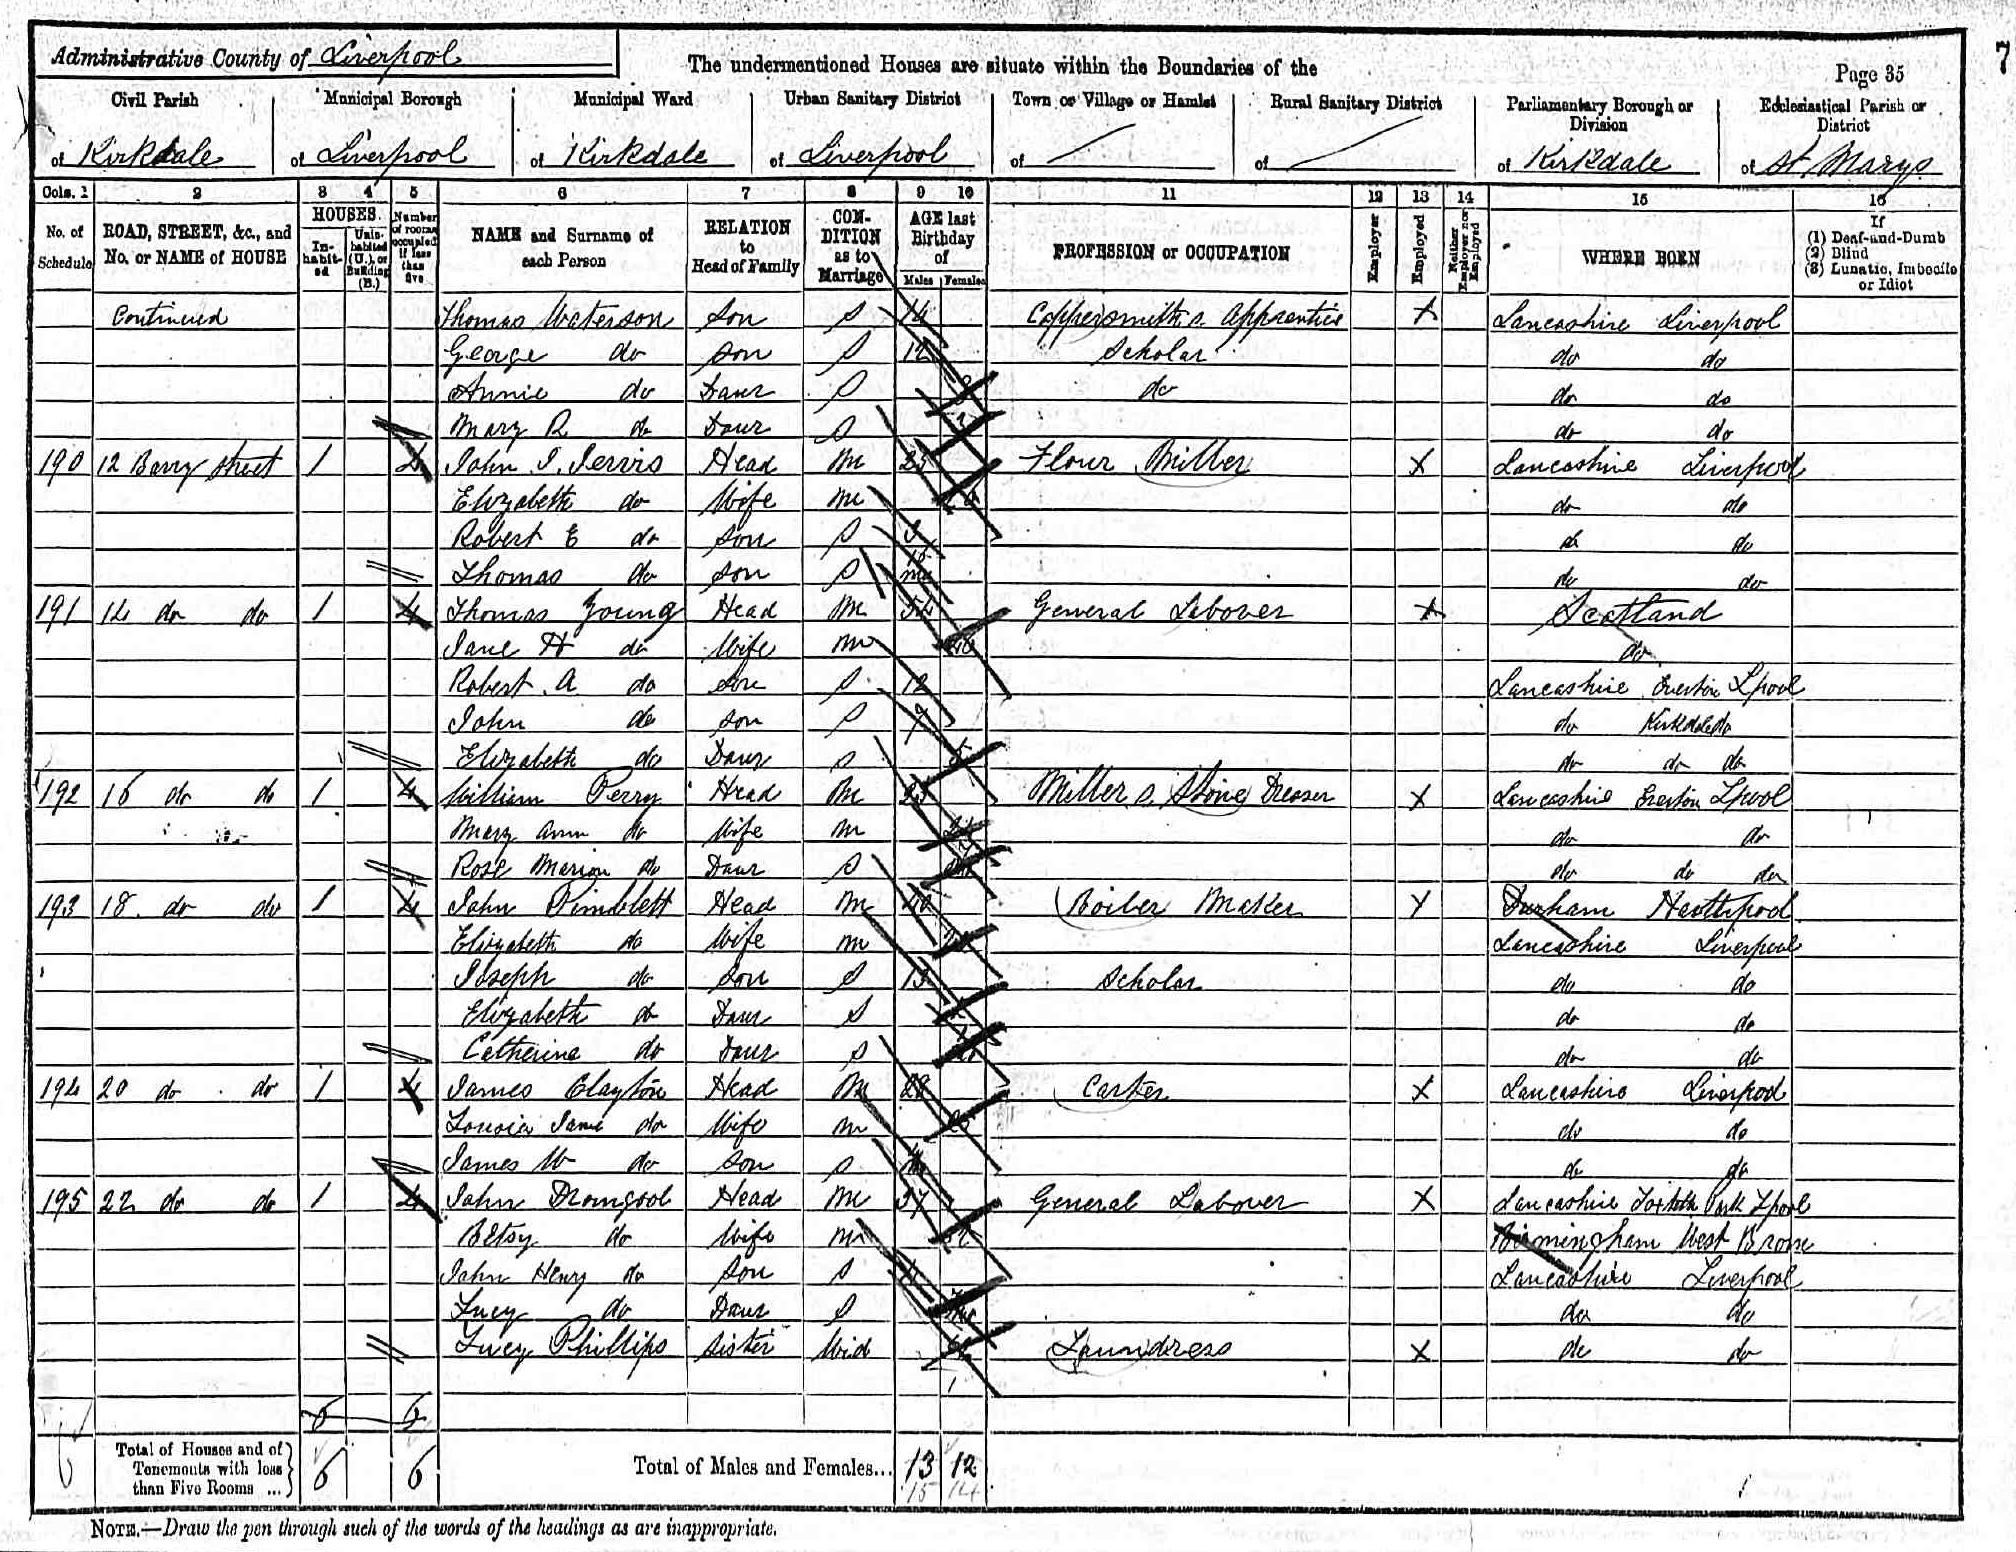 Administrative County of Liverpool
The undermentioned Houses are situate within the Boundaries of the
Page 35
7
Civil Parish Municipal Borough Municipal Ward Urban Sanitary District Town or Village or Hamlet Rural Sanitary District Parliamentary Borough or Division Ecclesiastical Parish or District
of Kirkdale of Liverpool of Kirkdale of Liverpool of of of Kirkdale of St Marys
Cols. 1 2 3 4 5 6 7 8 9 10 11 12 13 14 15 16
No. of Schedule ROAD, STREET, &c., and No. or NAME of HOUSE HOUSES. Inhabited Uninhabited (U.), or Building (B.) Number of rooms occupied if less than five NAME and Surname of each Person RELATION to Head of Family CONDITION as to Marriage AGE last Birthday of Males Females PROFESSION or OCCUPATION Employer Employed Neither Employer nor Employed WHERE BORN If (1) Deaf-and-Dumb (2) Blind (3) Lunatic, Imbecile or Idiot
Continued Thomas Waterson Son S 14 Coppersmiths Apprentice X Lancashire Liverpool
George do Son S 12 Scholar do do
Annie do Daur S do do do
Mary R do Daur S do do
190 12 Barry Street 1 4 John J. Jervis Head M Flour Miller X Lancashire Liverpool
Elizabeth do Wife M do do
Robert E do Son S do do
Thomas do Son S do do
191 14 do do 1 4 Thomas Young Head M General Labourer X Scotland
Jane H do Wife M do
Robert A do Son S 12 Lancashire Everton Lpool
John do Son S 7 do Kirkdale do
Elizabeth do Daur S do do do
192 16 do do 1 4 William Perry Head M Millers Stone Dresser X Lancashire Everton Lpool
Mary Ann do Wife M do do
Rose Marion do Daur S do do do
193 18 do do 1 4 John Pimblett Head M 40 Boiler Maker X Durham Hartlepool
Elizabeth do Wife M Lancashire Liverpool
Joseph do Son S 13 Scholar do do
Elizabeth do Daur S do do
Catherine do Daur S do do
194 20 do do 1 4 James Clayton Head M Carter X Lancashire Liverpool
Louisa Jane do Wife M do do
James W do Son S do do
195 22 do do 1 4 John Dromgool Head M 37 General Labourer X Lancashire Toxteth Park Lpool
Betsy do Wife M Birmingham West Brom
John Henry do Son S Lancashire Liverpool
Lucy do Daur S do do
Lucy Phillips Sister Wid Laundress X do do
6 6
Total of Houses and of Tenements with less than Five Rooms ... 6 6 Total of Males and Females... 13 12
15 14
NOTE.—Draw the pen through such of the words of the headings as are inappropriate.